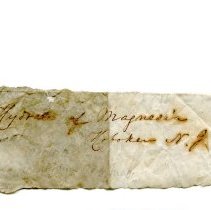 Hydrate of Magnesia
Hoboken N. J